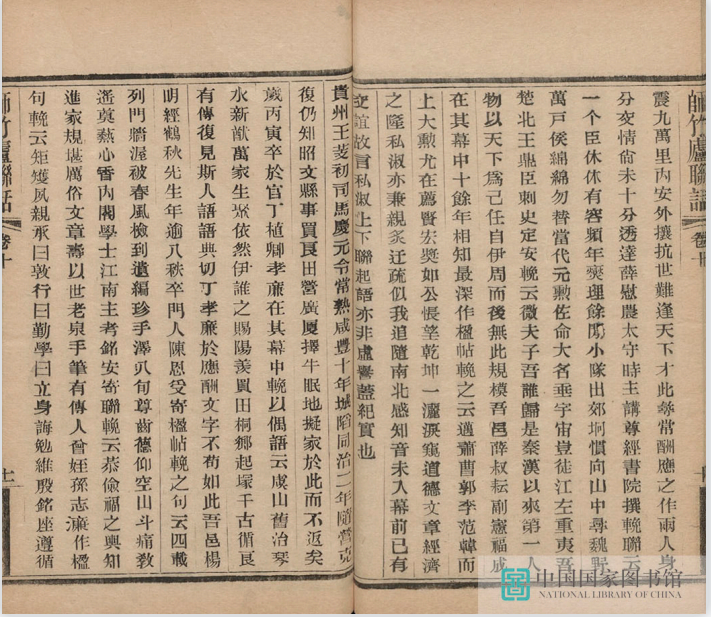 師竹廬聯話 卷十
震九萬里內安外攘抗世難逢天下才此尋常酬應之作兩人身
分交情尙未十分透達薛慰農太守時主講尊經書院撰輓聯云
一个臣休休有容頻年爕理餘閒小隊出郊坰慣向山中尋魏野
萬戸侯綿綿勿替當代元勲佐命大名垂宇宙豈徒江左重夷吾
楚北王鼎臣刺史定安輓云微夫子吾誰歸是秦漢以來第一人
物以天下爲己任自伊周而後無此規模吾邑薛叔耘副憲福成
在其幕中十餘年相知最深作楹帖輓之云邁蕭曹郭李范韓而
上大勲尤在薦賢宏奬如公悵望乾坤一灑淚窺道德文章經濟
之隆私淑亦兼親炙迂疏似我追隨南北感知音未入幕前已有
交誼故言私淑上下聯起語亦非虛譽葢紀實也
貴州王菱初司馬慶元令常熟咸豐十年城陷同治二年隨營克
復仍知昭文縣事買良田營廣厦擇牛眠地擬家於此而不返矣
歲丙寅卒於官丁植卿孝廉在其幕中輓以偶語云虞山舊治琴
水新猷萬家生聚依然伊誰之賜陽羨買田桐鄉起塚千古循良
有傳復見斯人語語典切丁孝廉於應酬文字不苟如此吾邑楊
明經鶴秋先生年逾八秩卒門人陳恩受寄楹帖輓之句云四載
列門牆渥被春風檢到遺編珍手澤八旬尊齒德仰空山斗痛敎
遙奠爇心香內閣學士江南主考銘安寄聯輓云恭儉福之輿知
進家規堪厲俗文章壽以世老泉手筆有傳人曾姪孫志濂作楹
句輓云矩矱夙親承曰敦行曰勤學曰立身誨勉維殷銘座遵循
師竹廬聯話 卷十
十一
中国国家图书馆
NATIONAL LIBRARY OF CHINA